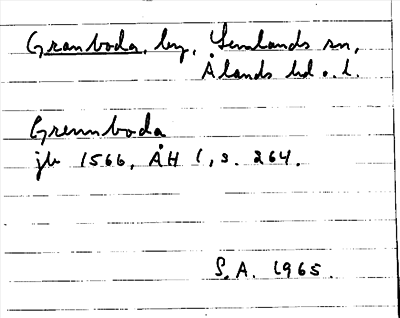 Granboda, by, Lemlands sn,
Ålands hd o. l.
Grennboda
jb 1566, ÅH 1, s. 264.
S.A. 1965.